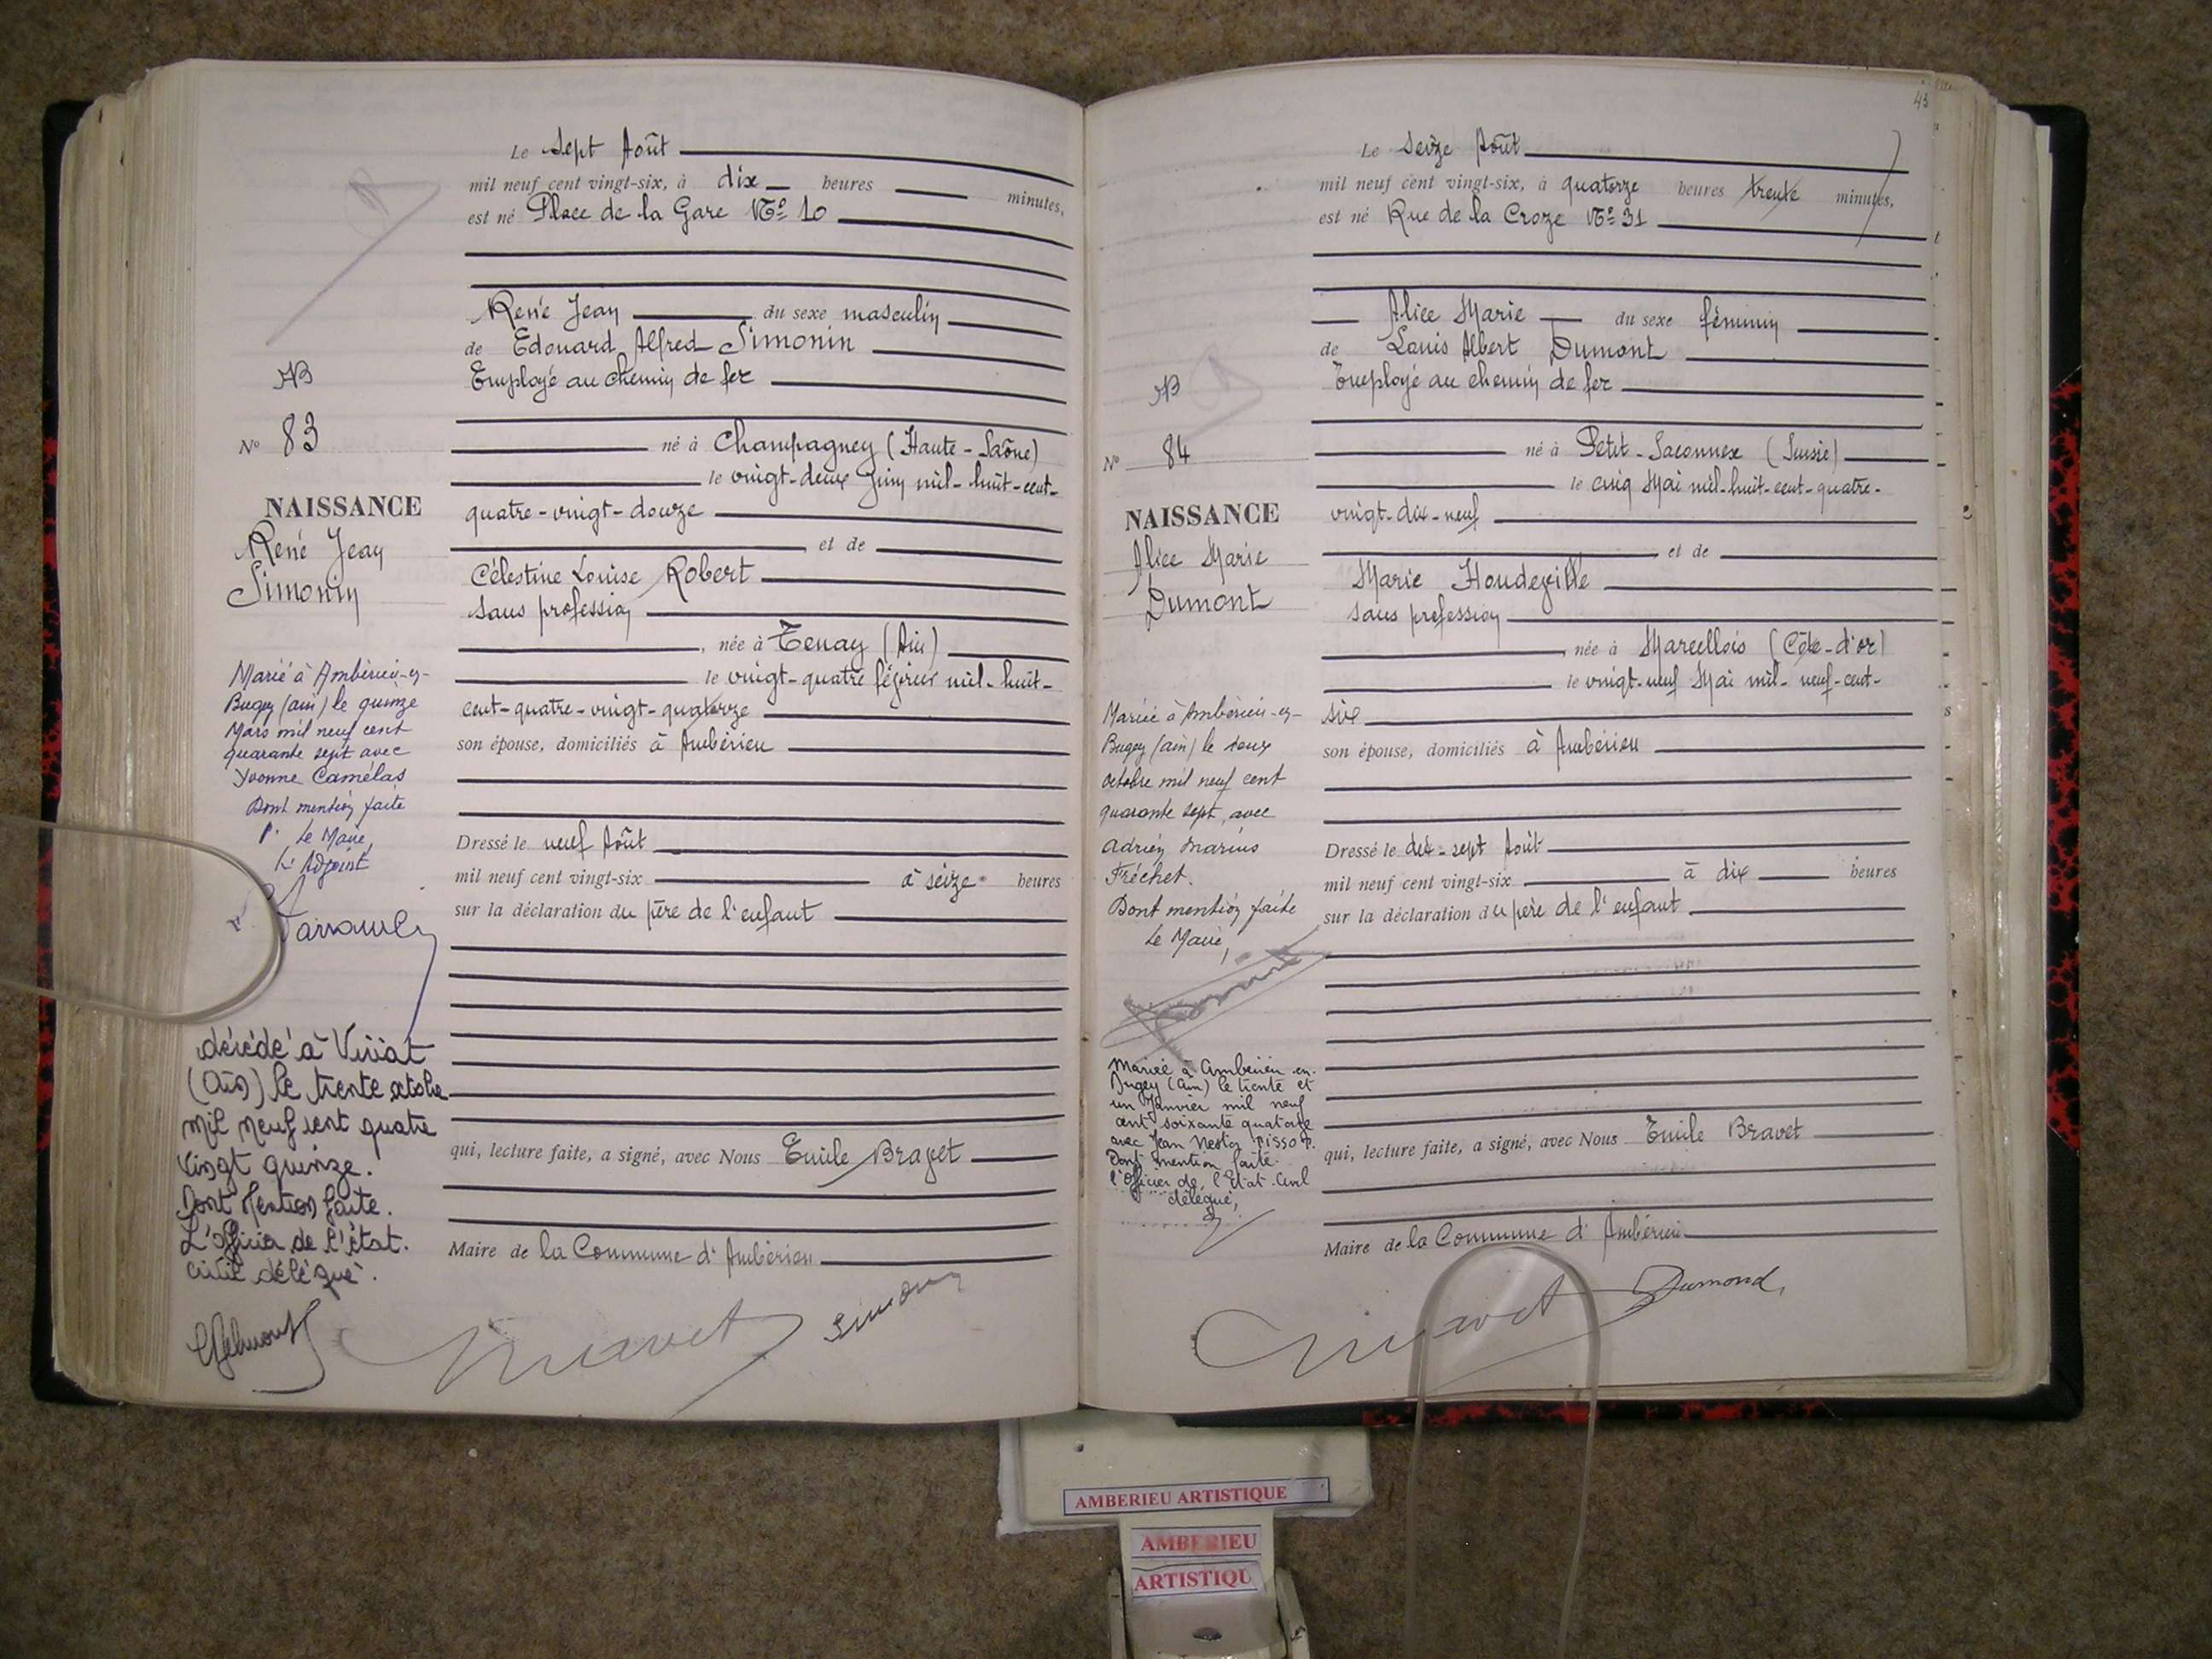 Le Sept Août
mil neuf cent vingt-six, à dix heures minutes,
est né Place de la Gare No 10
René Jean du sexe masculin
de Edouard Alfred Simonin
Employé au chemin de fer
né à Champagney (Haute-Saône)
le vingt-deux Juin mil-huit-cent-
quatre-vingt-douze
et de
Célestine Louise Robert
sans profession
, née à Tenay (Ain)
le vingt-quatre février mil-huit-
cent-quatre-vingt-quatorze
son épouse, domiciliés à Ambérieu
Dressé le neuf Août
mil neuf cent vingt-six à seize heures
sur la déclaration du père de l'enfant
qui, lecture faite, a signé, avec Nous Emile Bravet
Maire de la Commune d'Ambérieu
Bravet Simonin
NB
No 83
NAISSANCE
René Jean
Simonin
Marié à Ambérieu-en-
Bugey (ain) le quinze
Mars mil neuf cent
quarante sept avec
Yvonne Camélas
Dont mention faite
P. Le Maire,
L'Adjoint
décédé à Viriat
(Ain) le trente octobre
mil neuf cent quatre
vingt quinze.
Dont Mention faite.
L'officier de l'état.
civil délégué.
43
Le Seize Août
mil neuf cent vingt-six, à quatorze heures trente minutes,
est né Rue de la Croze No 31
Alice Marie du sexe féminin
de Louis Albert Dumont
Employé au chemin de fer
né à Petit-Saconnex (Suisse)
le cinq Mai mil-huit-cent-quatre-
vingt-dix-neuf
et de
Marie Houdeville
sans profession
, née à Marcellois (Côte-d'or)
le vingt-neuf Mai mil-neuf-cent-
six
son épouse, domiciliés à Ambérieu
Dressé le dix-sept Août
mil neuf cent vingt-six à dix heures
sur la déclaration du père de l'enfant
qui, lecture faite, a signé, avec Nous Emile Bravet
Maire de la Commune d'Ambérieu
Bravet Dumond
NB
No 84
NAISSANCE
Alice Marie
Dumont
Mariée à Ambérieu-en-
Bugey (ain) le
octobre mil neuf cent
quarante sept, avec
Adrien Marius
Fréchet.
Dont mention faite
Le Maire,
Mariée à Ambérieu-en-
Bugey (Ain) le trente et
un Janvier mil neuf
cent soixante quatorze
avec Jean Nestor
Dont mention faite.
l'Officier de l'Etat-Civil
délégué,
AMBERIEU ARTISTIQUE
AMBERIEU
ARTISTIQU